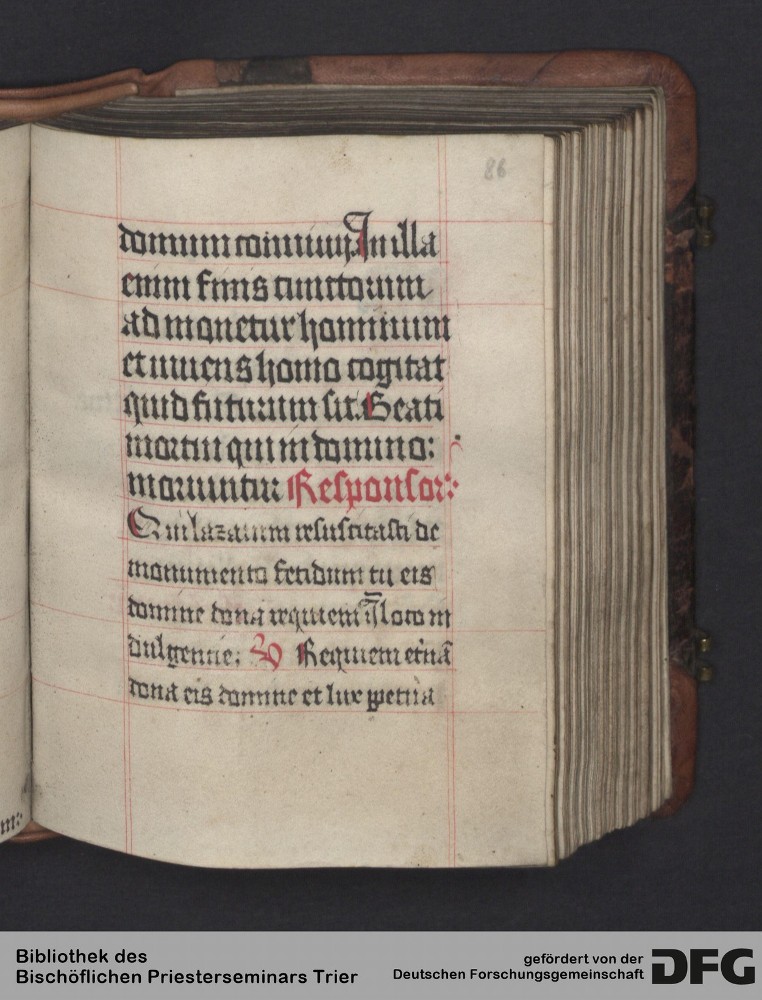 86
domum conuiuij. In illa
enim finis cunctorum
admonetur hominum
et uiuens homo cogitat
quid futurum sit. Beati
mortui qui in domino:
moriuntur Responsor:
Qui lazarum resuscitasti de
monumento fetidum tu eis
domine dona requiem ⁊ locum in
dulgentie: ℣ Requiem et̾nā
dona eis domine et lux ꝑpetua
Bibliothek des
Bischöflichen Priesterseminars Trier
gefördert von der
Deutschen Forschungsgemeinschaft
DFG